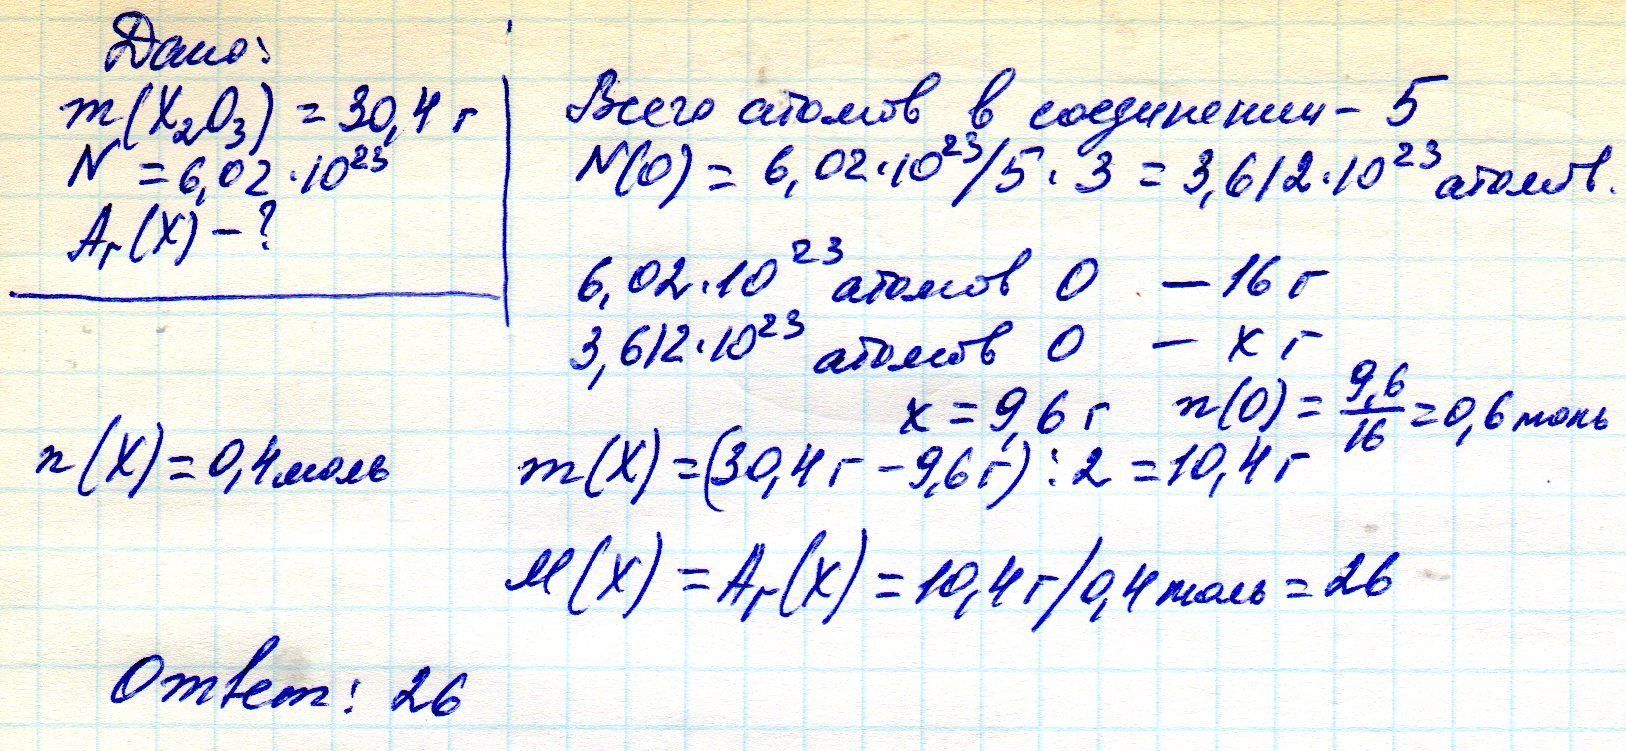 Дано:
m(X₂O₃) = 30,4 г
N = 6,02·10²³
Ar(X) – ?
Всего атомов в соединении – 5
N(O) = 6,02·10²³/5 · 3 = 3,612·10²³ атомов.
6,02·10²³ атомов O – 16 г
3,612·10²³ атомов O – x г
x = 9,6 г n(O) = 9,6/16 = 0,6 моль
n(X) = 0,4 моль
m(X) = (30,4 г – 9,6 г) : 2 = 10,4 г
M(X) = Ar(X) = 10,4 г/0,4 моль = 26
Ответ: 26